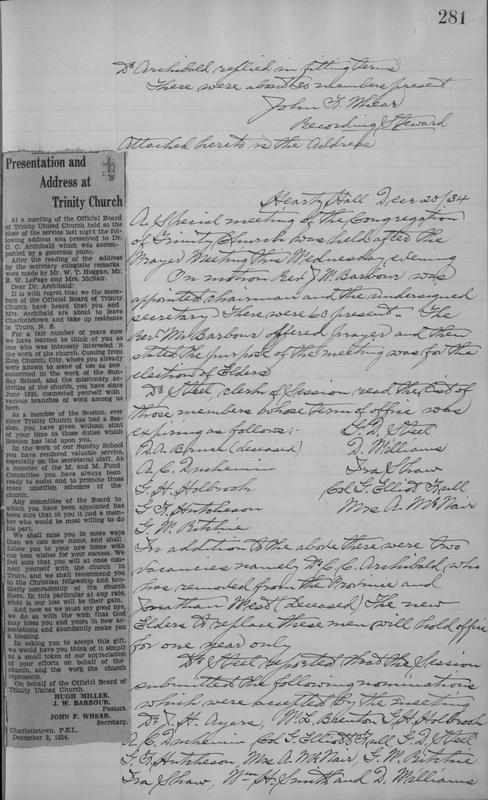 281
Dr Archibald replied in fitting terms
There were about 30 members present
John F. Whear
Recording Steward
Attached hereto is the Address
Presentation and
Address at
Trinity Church
At a meeting of the Official Board
of Trinity United Church held at the
close of the service last night the fol-
lowing address was presented to Dr.
C. C. Archibald which was accom-
panied by a generous purse.
After the reading of the address
by the secretary eulogistic remarks
were made by Mr. W. T. Huggan, Mr.
B. W. LePage and Mrs. McNair.
Dear Dr. Archibald:
It is with regret that we the mem-
bers of the Official Board of Trinity
Church have heard that you and
Mrs. Archibald are about to leave
Charlottetown and take up residence
in Truro, N. S.
For a fair number of years now
we have learned to think of you as
one who was intensely interested in
the work of the church. Coming from
Zion Church, City, where you already
were known to some of use as one
concerned in the work of the Sun-
day School, and the missionary ac-
tivities of the church, you have since
June 1925, connected yourself with
various branches of work among us
here.
As a member of the Session, ever
since Trinity Church has had a Ses-
sion, you have given without stint
of your time to those duties which
Session has laid upon you.
In the work of our Sunday School
you have rendered valuable service,
especially on the secretarial staff. As
a member of the M. and M. Fund
Committee you have always been
ready to assist and to promote those
more unselfish schemes of the
church.
Any committee of the Board to
which you have been appointed has
been sure that in you it had a mem-
ber who would be most willing to do
his part.
We shall miss you in more ways
than we can now name, and shall
follow you to your new home with
our best wishes for your success. We
feel sure that you will at once con-
nect yourself with the church in
Truro, and we shall recommend you
to the Christian fellowship and bro-
therly comradeship of the church
there. In this particular at any rate,
what is our loss will be their gain.
And now as we must say good bye,
we do so with the wish that God
may bless you and yours in new as-
sociations and abundantly make you
a blessing.
In asking you to accept this gift,
we would have you think of it simply
as a small token of our appreciation
of your efforts on behalf of the
church, and the work the church
represents.
On behalf of the Official Board of
Trinity United Church.
HUGH MILLER.
J. W. BARBOUR.
Pastors.
JOHN F. WHEAR,
Secretary.
Charlottetown, P.E.I.,
December 2, 1934.
Hearty Hall Decr 20/34
A Special meeting of the Congregation
of Trinity Church was held after the
Prayer Meeting this Wednesday evening
On motion Rev J W. Barbour was
appointed chairman and the undersigned
secretary There were 60 present. The
Rev Mr Barbour offered prayer and then
stated the purpose of the meeting was for the
election of Elders
Dr Steel clerk of Session read the list of
those members whose term of office was
expiring as follows:- T. D. Steel
D. A. Bruce (deceased) D. Williams
A. C. Duchemin Ira Shaw
F. H. Holbrook Col G. Elliott Full
G. F. Hutcheson Mrs A. McNair
G. W. Ritchie
In addition to the above there were two
vacancies namely Dr C. C. Archibald, who
has removed from the Province and
Jonathan Weir (deceased) The new
Elders to replace these men will hold office
for one year only
Dr Steel reported that the Session
submitted the following nominations
which were accepted by the meeting
Dr J. H. Ayers, W. L. Brenton F. H. Holbrook
A. C. Duchemin Col G. Elliott Full T. D. Steel
G. F. Hutcheson, Mrs A. McNair, G. W. Ritchie
Ira Shaw, Wm H. Smith and D. Williams